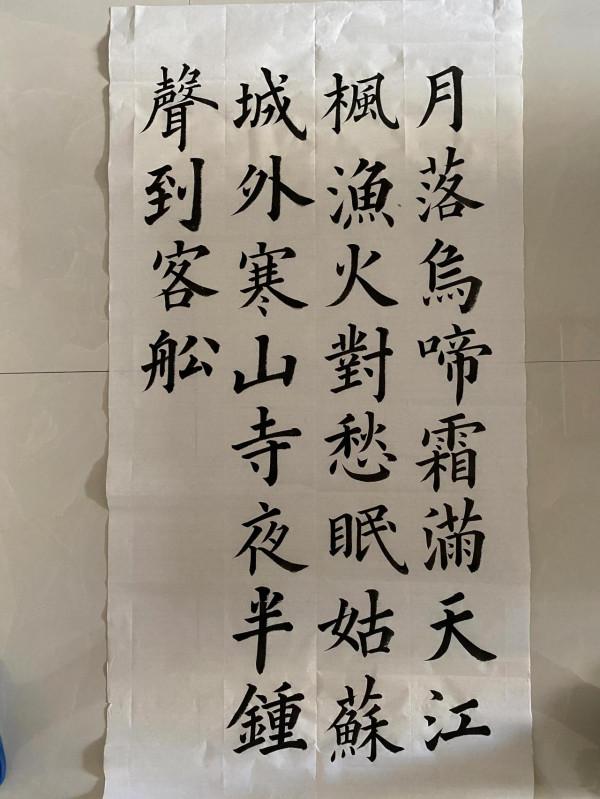 月落烏啼霜滿天江
楓漁火對愁眠姑蘇
城外寒山寺夜半鍾
聲到客舩